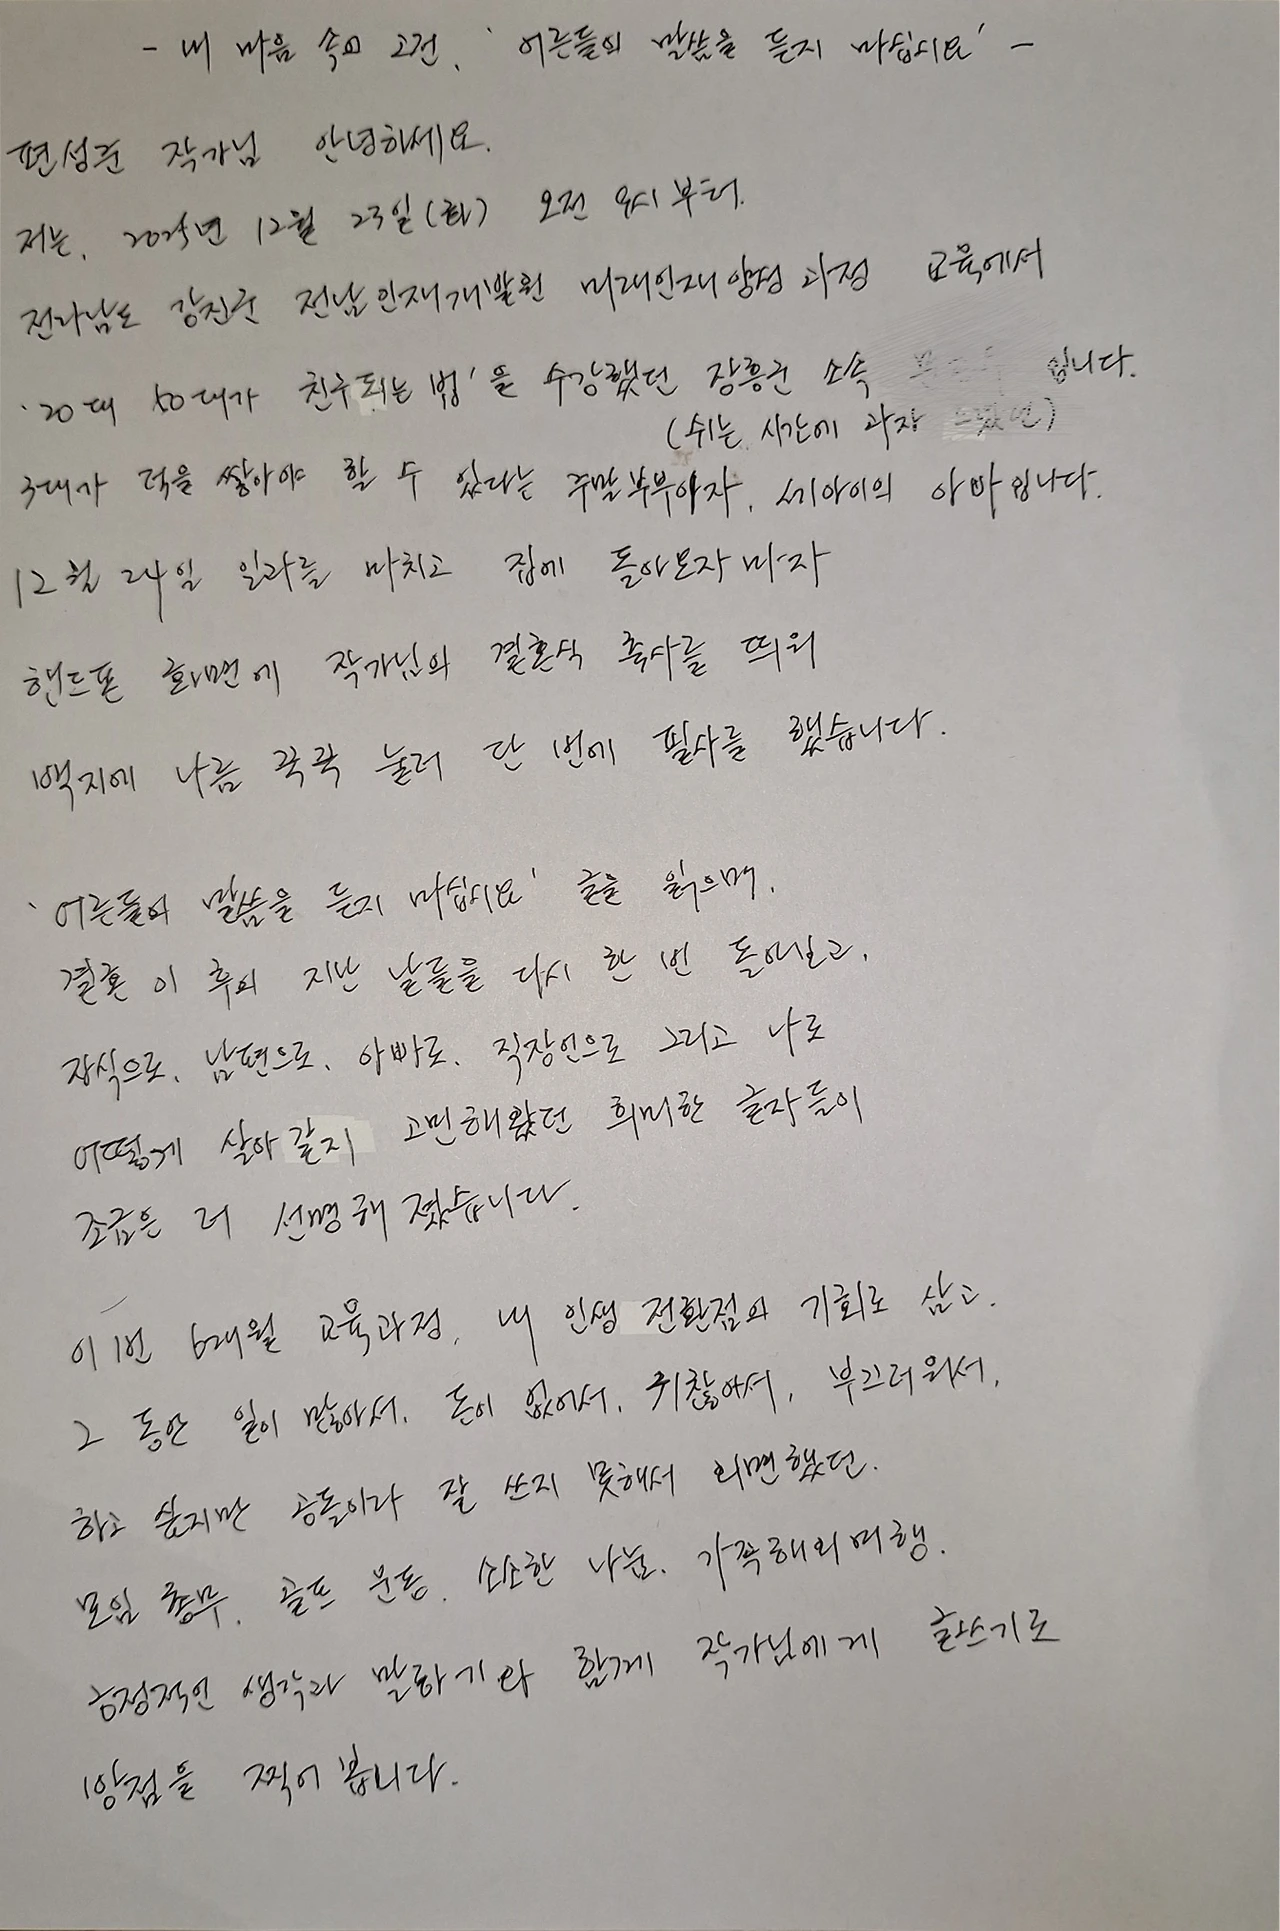 - 내 마음 속의 고전, '어른들의 말씀을 듣지 마십시요' -
편성준 작가님 안녕하세요.
저는, 2025년 12월 23일(화) 오전 9시부터.
전라남도 강진군 전남인재개발원 미래인재양성과정 교육에서
'20대 50대가 친구되는 법'을 수강했던 장흥군 소속 입니다.
(쉬는 시간에 과자 드렸던)
3대가 덕을 쌓아야 할 수 있다는 주말부부이자, 세아이의 아빠입니다.
12월 24일 일과를 마치고 집에 돌아오자마자
핸드폰 화면에 작가님의 결혼식 축사를 띄워
백지에 나름 꾹꾹 눌러 단 번에 필사를 했습니다.
'어른들의 말씀을 듣지 마십시요' 글을 읽으며,
결혼 이 후의 지난 날들을 다시 한 번 돌아보고,
자식으로, 남편으로, 아빠로, 직장인으로 그리고 나로
어떻게 살아갈지 고민해왔던 희미한 글자들이
조금은 더 선명해 졌습니다.
이번 6개월 교육과정, 내 인생 전환점의 기회로 삼고,
그 동안 일이 많아서, 돈이 없어서, 귀찮아서, 부끄러워서,
하고 싶지만 공돌이라 잘 쓰지 못해서 외면했던.
모임 총무, 골프 운동, 소소한 나눔, 가족해외여행.
긍정적인 생각과 말하기와 함께 작가님에게 글쓰기로
방점을 찍어 봅니다.